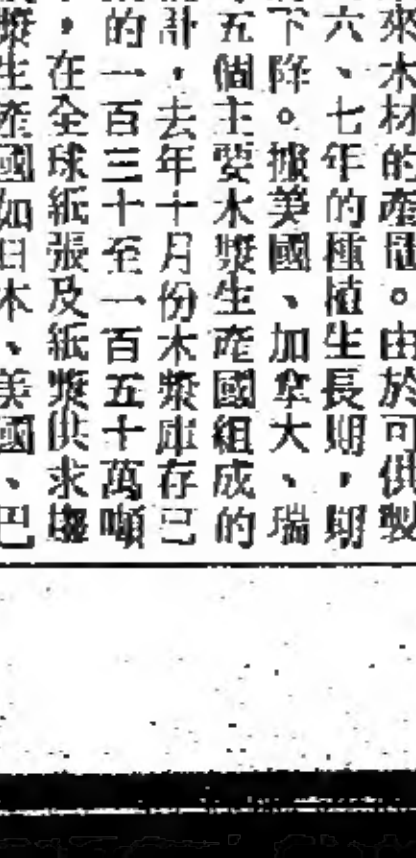 來木材的產量。由於可供製
六、七年的種植生長期，期
下降。據美國、加拿大、瑞
五個主要木漿生產國組成的
計，去年十月份木漿庫存已
的一百三十至一百五十萬噸
，在全球紙張及紙漿供求
漿生產國如日本、美國、巴